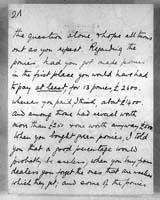 the question alone, & hope all turns
out as you repeat. Regarding the
ponies, had you got made ponies
in the first place you would have had
to pay at least, for 13 ponies £2600.
whereas you paid, I think, about £1400.
and among those had several worth
more than £200
When you bought green ponies, I told
you that a good percentage would
probably be useless, when you buy from
dealers you forget the ones that are useless
which they get, and some of the ponies